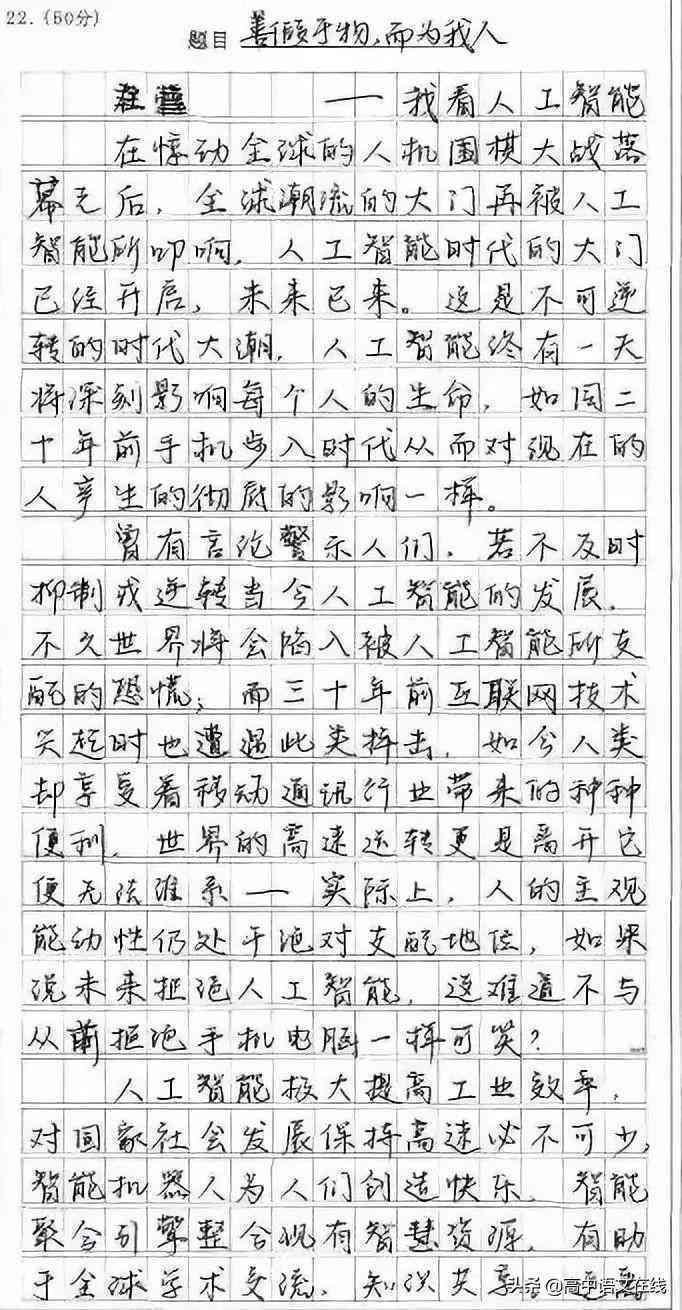 22.(50分)
题目 善假于物,而为我人
——我看人工智能
在惊动全球的人机围棋大战落
幕之后,全球潮流的大门再被人工
智能所叩响,人工智能时代的大门
已经开启,未来已来。这是不可逆
转的时代大潮,人工智能终有一天
将深刻影响每个人的生命,如同二
十年前手机步入时代从而对现在的
人产生的彻底的影响一样。
曾有言论警示人们,若不及时
抑制或逆转当今人工智能的发展,
不久世界将会陷入被人工智能所支
配的恐慌;而三十年前互联网技术
兴起时也遭遇此类抨击,如今人类
却享受着移动通讯行业带来的种种
便利,世界的高速运转更是离开它
便无法维系——实际上,人的主观
能动性仍处于绝对支配地位,如果
说未来拒绝人工智能,这难道不与
从前拒绝手机电脑一样可笑?
人工智能极大提高工业效率,
对国家社会发展保持高速必不可少,
智能机器人为人们创造快乐,智能
聚合引擎整合现有智慧资源,有助
于全球学术交流,知识共享
头条@高中语文在线